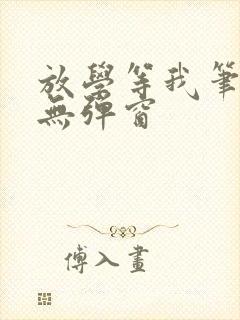 放學等我筆
無彈窗
傅入畫